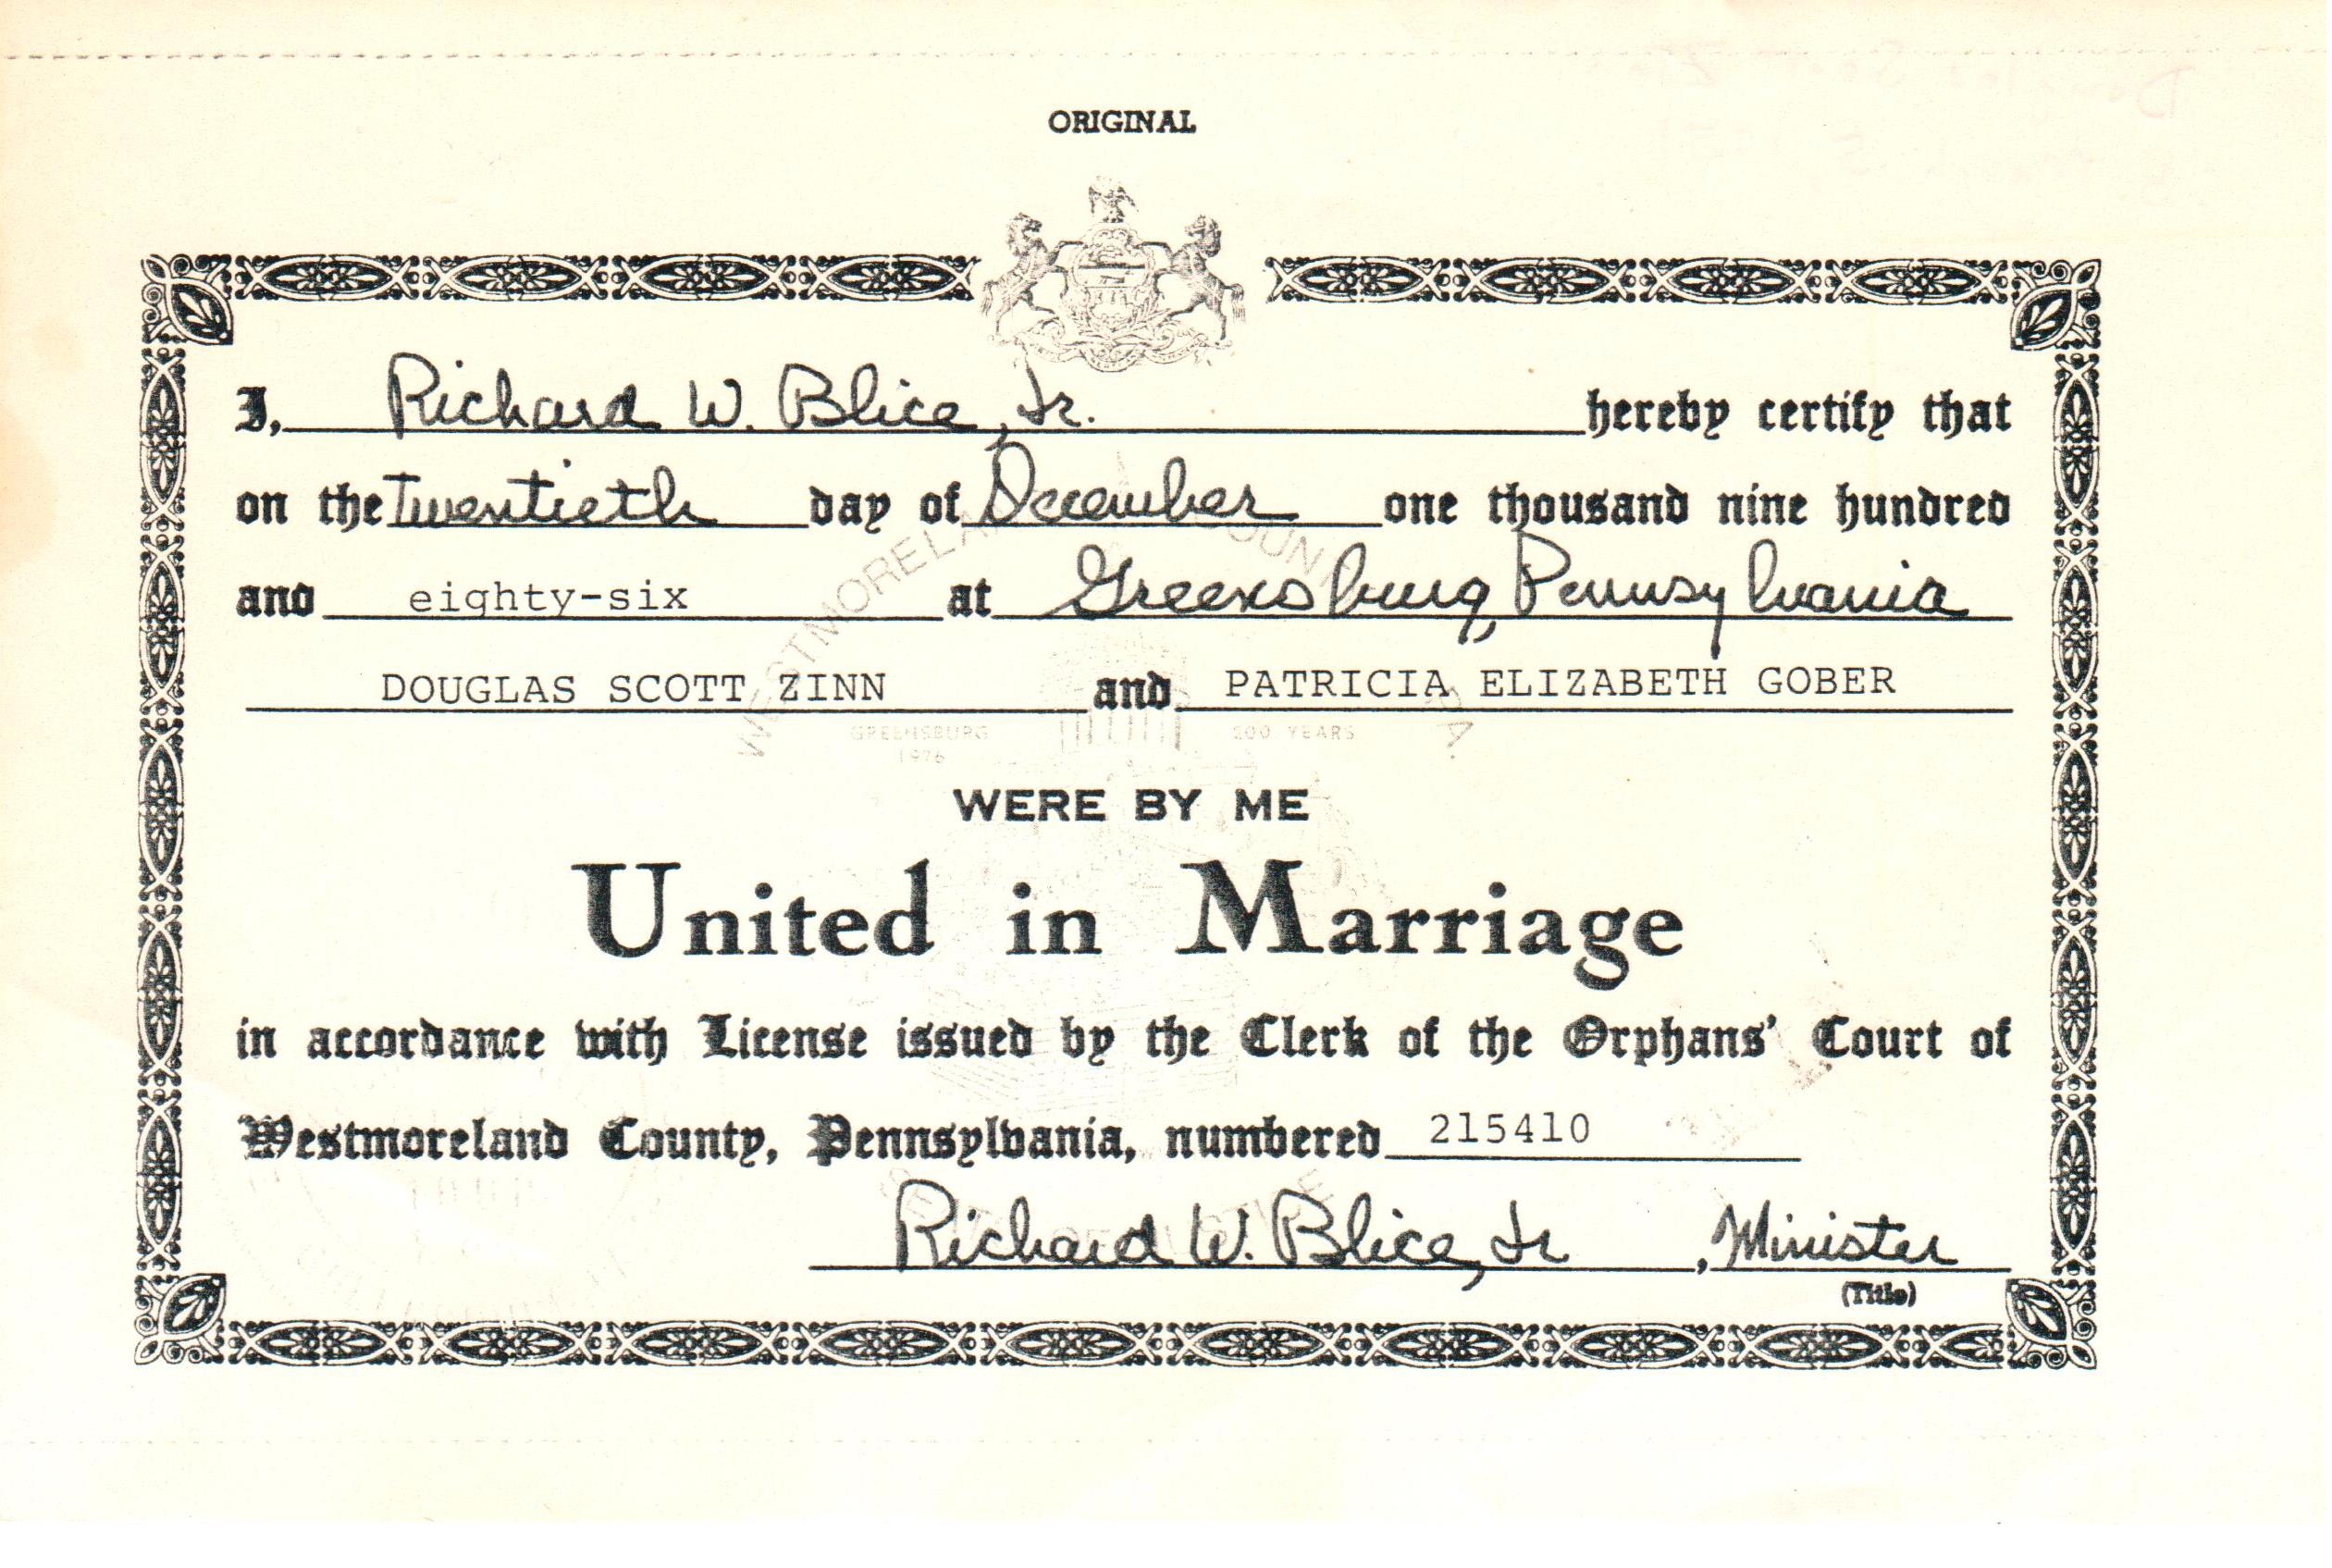 ORIGINAL
I, Richard W. Blice, Jr. hereby certify that
on the Twentieth day of December one thousand nine hundred
and eighty-six at Greensburg, Pennsylvania
DOUGLAS SCOTT ZINN and PATRICIA ELIZABETH GOBER
GREENSBURG
1976
YEARS
WERE BY ME
United in Marriage
in accordance with License issued by the Clerk of the Orphans' Court of
Westmoreland County, Pennsylvania, numbered 215410
Richard W. Blice, Jr , Minister
(Title)